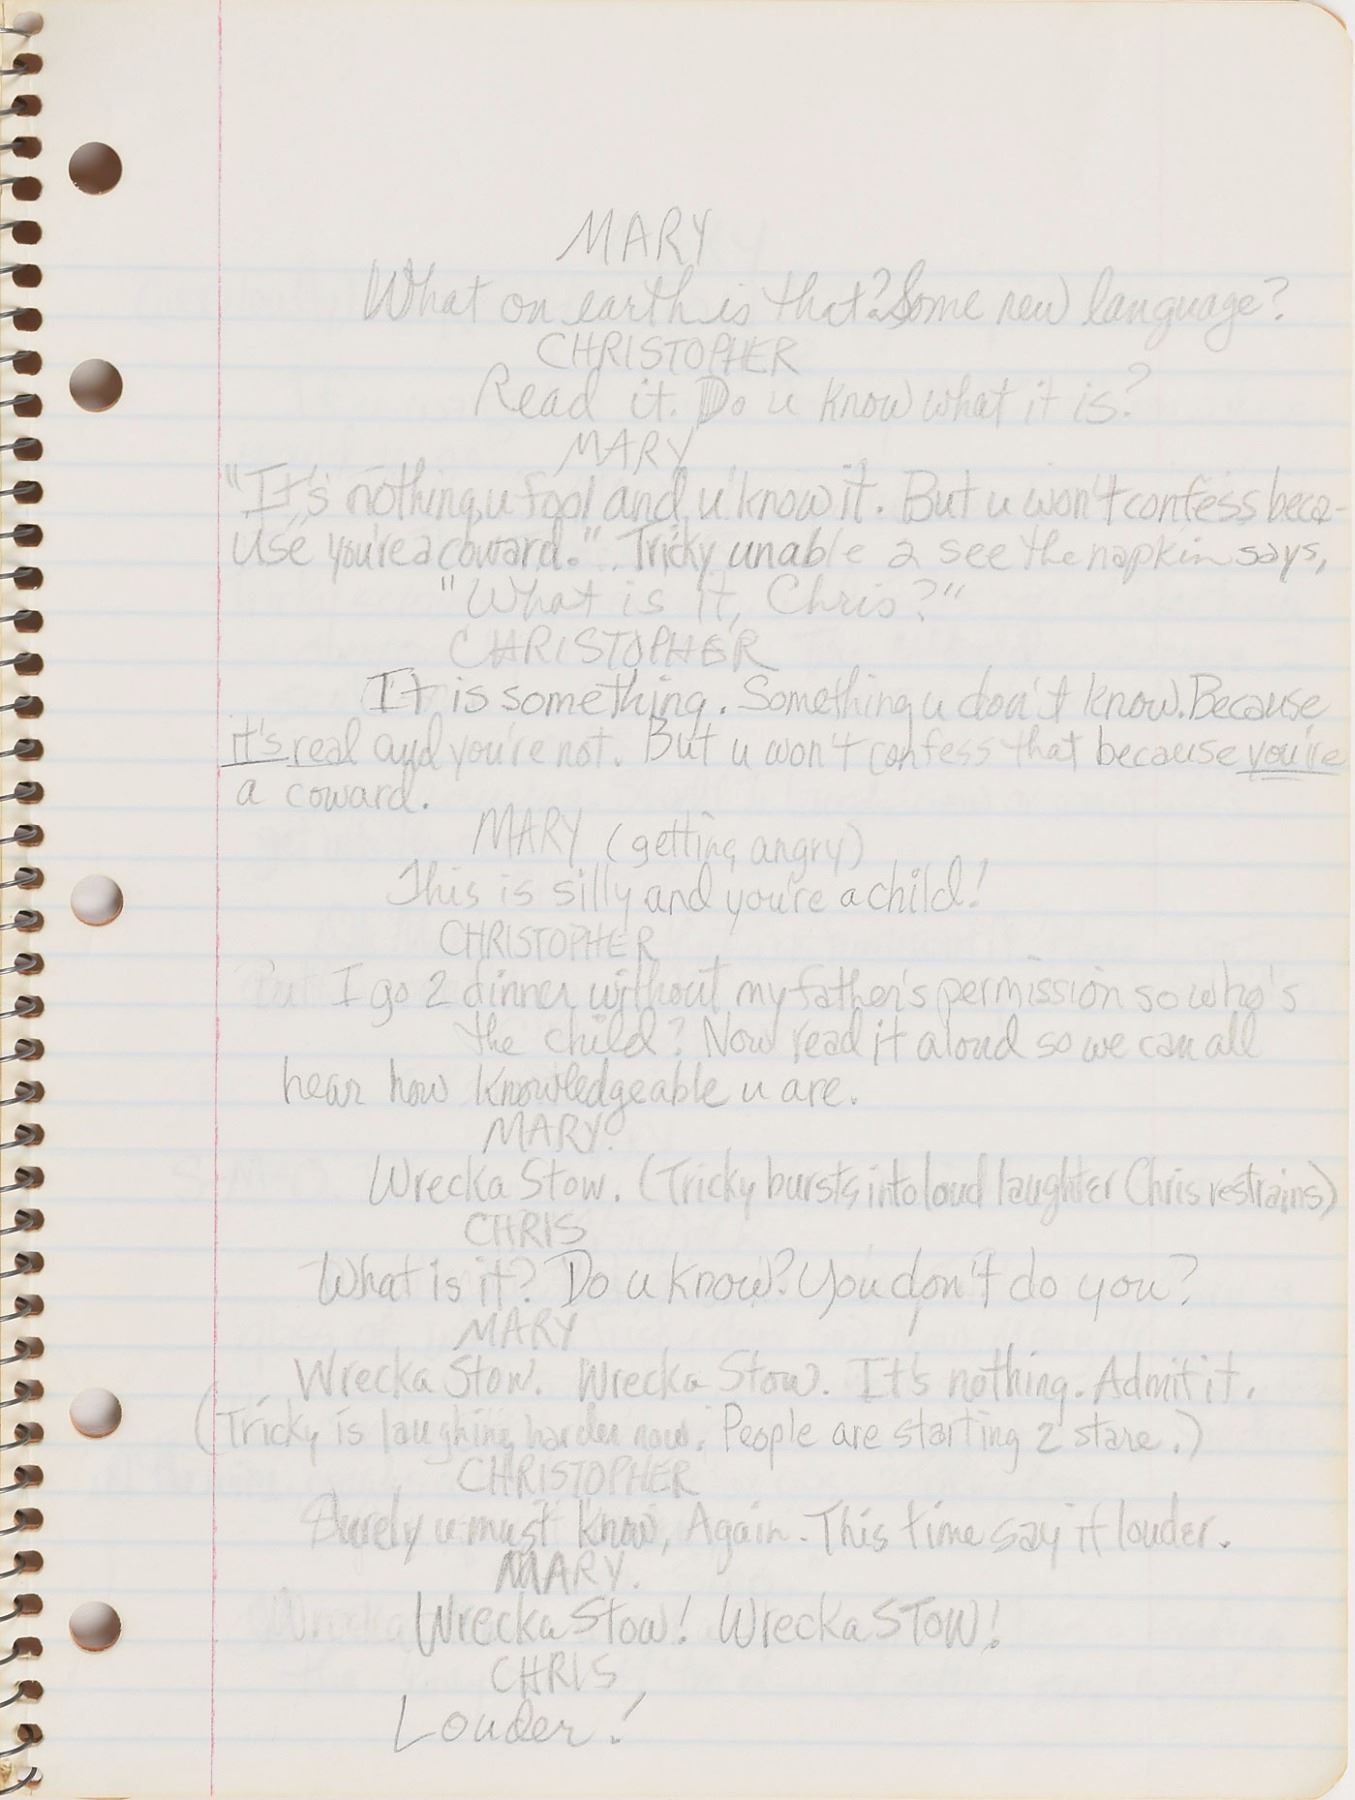 MARY
What on earth is that? Some new language?
CHRISTOPHER
Read it. Do u know what it is?
MARY
"It's nothing, u fool and u know it. But u won't confess beca-
use you're a coward." Tricky unable 2 see the napkin says,
"What is it, Chris?"
CHRISTOPHER
It is something. Something u don't know. Because
it's real and you're not. But u won't confess that because you're
a coward.
MARY (getting angry)
This is silly and you're a child!
CHRISTOPHER
But I go 2 dinner without my father's permission so who's
the child? Now read it aloud so we can all
hear how knowledgeable u are.
MARY
Wrecka Stow. (Tricky bursts into loud laughter Chris restrains)
CHRIS
What is it? Do u know? You don't do you?
MARY
Wrecka Stow. Wrecka Stow. It's nothing. Admit it.
(Tricky is laughing harder now. People are starting 2 stare.)
CHRISTOPHER
Surely u must know, Again. This time say it louder.
MARY.
Wrecka Stow! Wrecka STOW!
CHRIS
Louder!